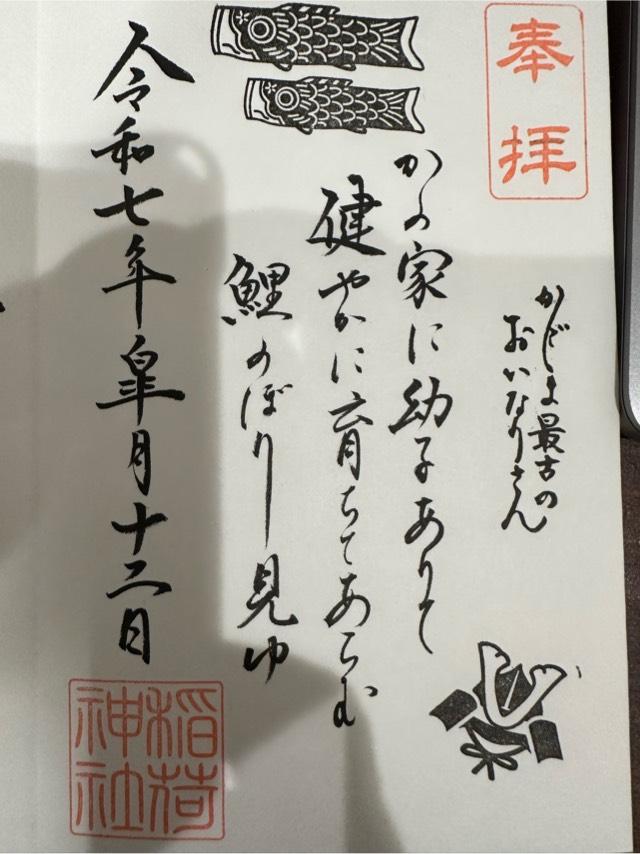 奉拝
かごしま最古の
おいなりさん
かの家に幼子ありて
健やかに育ちてあらむ
鯉のぼりし見ゆ
令和七年皐月十二日
稲荷
神社